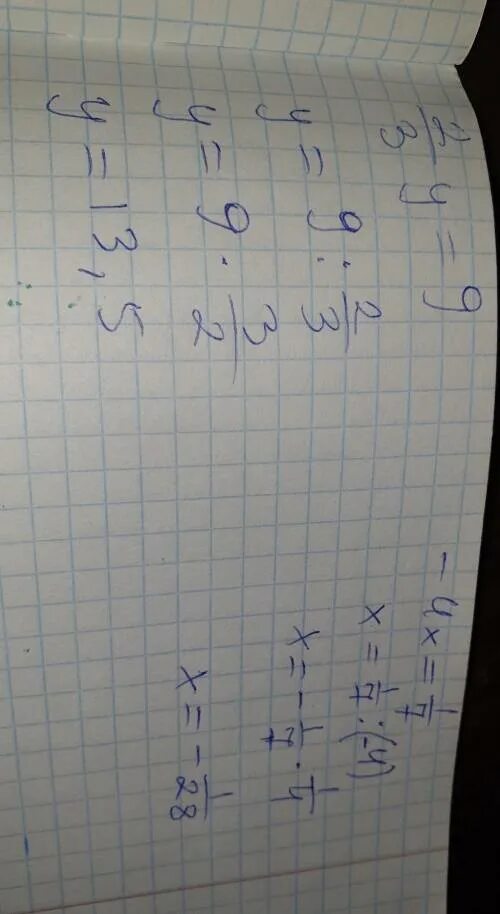 2/3 y = 9
y = 9 : 2/3
y = 9 · 3/2
y = 13,5
-4x = 1/7
x = 1/7 : (-4)
x = - 1/7 · 1/4
x = - 1/28